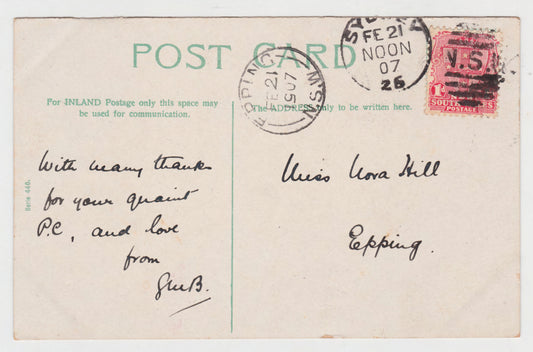 POST CARD
SYDNEY
FE 21
NOON
07
26
N.S.
1d
SOUTH
POSTAGE
EPPING
N.S.W
FE 21
1907
For INLAND Postage only this space may
be used for communication.
The ADDRESS only to be written here.
With many thanks
for your quaint
P.C, and love
from
Miss Nora Hill
Epping.